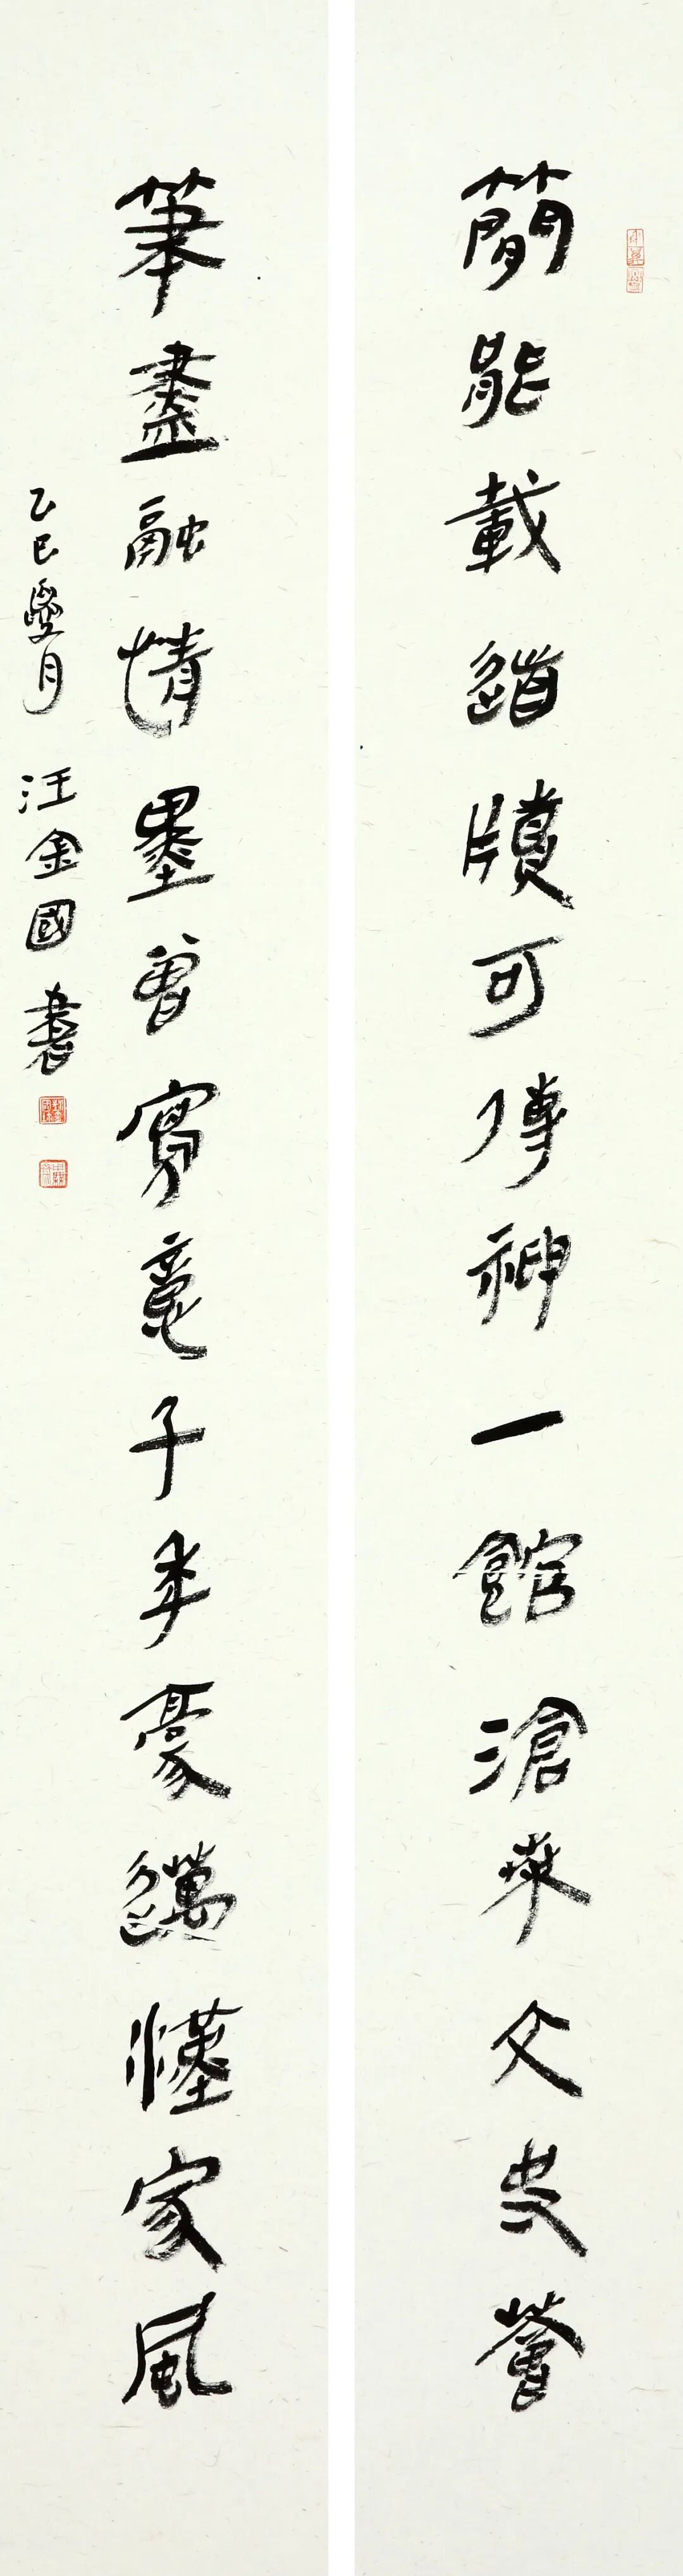 簡能載道牘可傳神一館滄桑文史薈
筆盡融情墨曾寫意千年豪邁漢家風
乙巳夏月 汪金國書